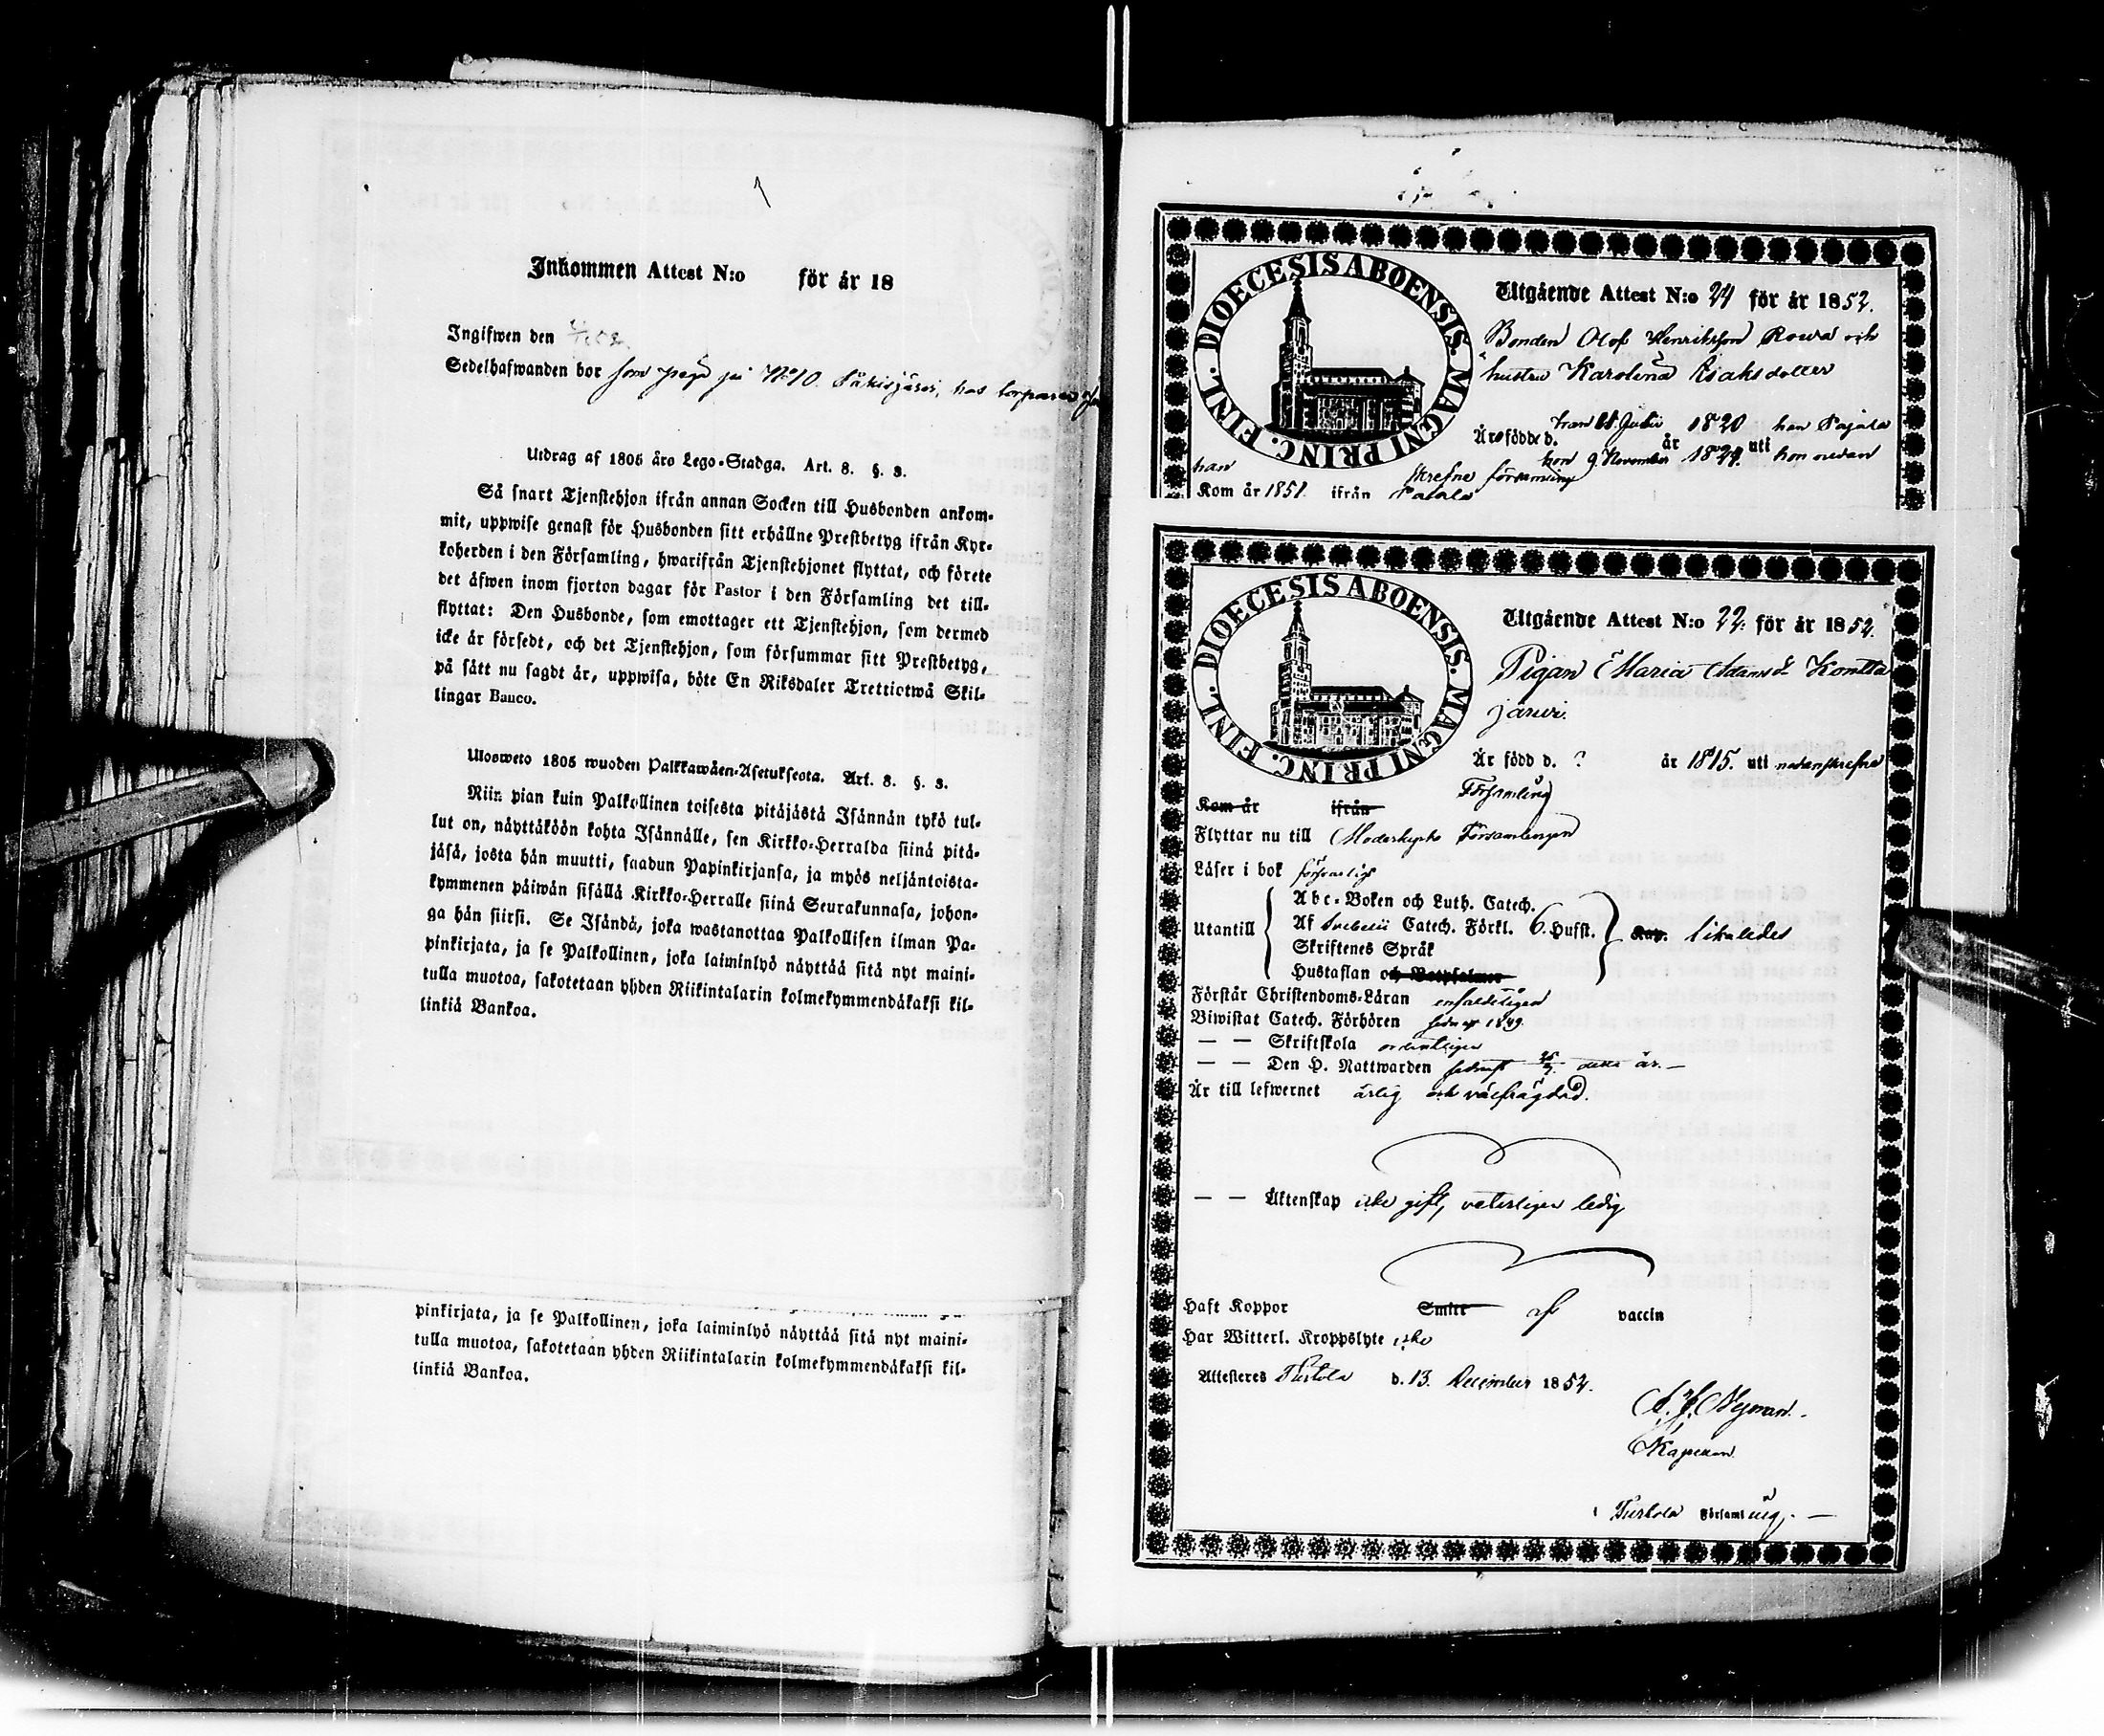 Inkommen Attest N:o för år 18
Ingifwen den
Sedelhafwanden bor som piga på N:o 10. hos
Utdrag af 1805 års Lego-Stadga. Art. 8. §. 3.
Så snart Tjenstehjon ifrån annan Socken till Husbonden ankom-
mit, uppwise genast för Husbonden sitt erhållne Prestbetyg ifrån Kyr-
koherden i den Församling, hwarifrån Tjenstehjonet flyttat, och förete
det äfwen inom fjorton dagar för Pastor i den Församling det till-
flyttat: Den Husbonde, som emottager ett Tjenstehjon, som dermed
icke är försedt, och det Tjenstehjon, som försummar sitt Prestbetyg,
på sätt nu sagdt är, uppwisa, böte En Riksdaler Trettiotwå Skil-
lingar Banco.
Ulosweto 1805 wuoden Palkkawäen-Asetuksesta. Art. 8. §. 3.
Niin pian kuin Palkollinen toisesta pitäjästä Isännän tykö tul-
lut on, näyttäköön kohta Isännälle, sen Kirkko-Herralda siinä pitä-
jäsä, josta hän muutti, saadun Papinkirjansa, ja myös neljäntoista-
kymmenen päiwän sisällä Kirkko-Herralle siinä Seurakunnasa, johon-
ga hän siirsi. Se Isändä, joka wastanottaa Palkollisen ilman Pa-
pinkirjata, ja se Palkollinen, joka laiminlyö näyttää sitä nyt maini-
tulla muotoa, sakotetaan yhden Riikintalarin kolmekymmendäkaksi kil-
linkiä Bankoa.
pinkirjata, ja se Palkollinen, joka laiminlyö näyttää sitä nyt maini-
tulla muotoa, sakotetaan yhden Riikintalarin kolmekymmendäkaksi kil-
linkiä Bankoa.
DIOECESIS ABOENSIS. MAGNI PRINC. FINL.
Utgående Attest N:o 21 för år 1852.
Bonden Olof Henriksson Rowa och
hustru Karolina Isaksdotter
han Julii 1820 han Pajala
Äro födde d. år uti
hon 9 November hon nedan
han skrefne församling
Kom år 1851 ifrån Pajala
DIOECESIS ABOENSIS. MAGNI PRINC. FINL.
Utgående Attest N:o 22. för år 1852.
Pigan Maria Adamsd. Konttajärwi.
Är född d. ? år 1815. uti nedanskrefne
Församling
Kom år ifrån
Flyttar nu till Moderkyrko Församlingen
Läser i bok försvarligt
Utantill
Abc-Boken och Luth. Catech.
Af Svebelii Catech. Förkl. 6. Hufst.
Skriftenes Språk
Hustaflan och Botpsalmer
likaledes
Förstår Christendoms-Läran enfaldeligen
Biwistat Catech. Förhören sednast 1849.
— — Skriftskola ordentligen
— — Den H. Nattwarden sednast detta år. —
Är till lefwernet ärlig och välfrägdad.
— — Äktenskap icke gift, veterligen ledig
Haft Koppor Smitt af vaccin
Har Witterl. Kroppslyte icke
Attesteres Turtola d. 13. December 1852.
Nyman.
Kapellan
i Turtola Församling. —